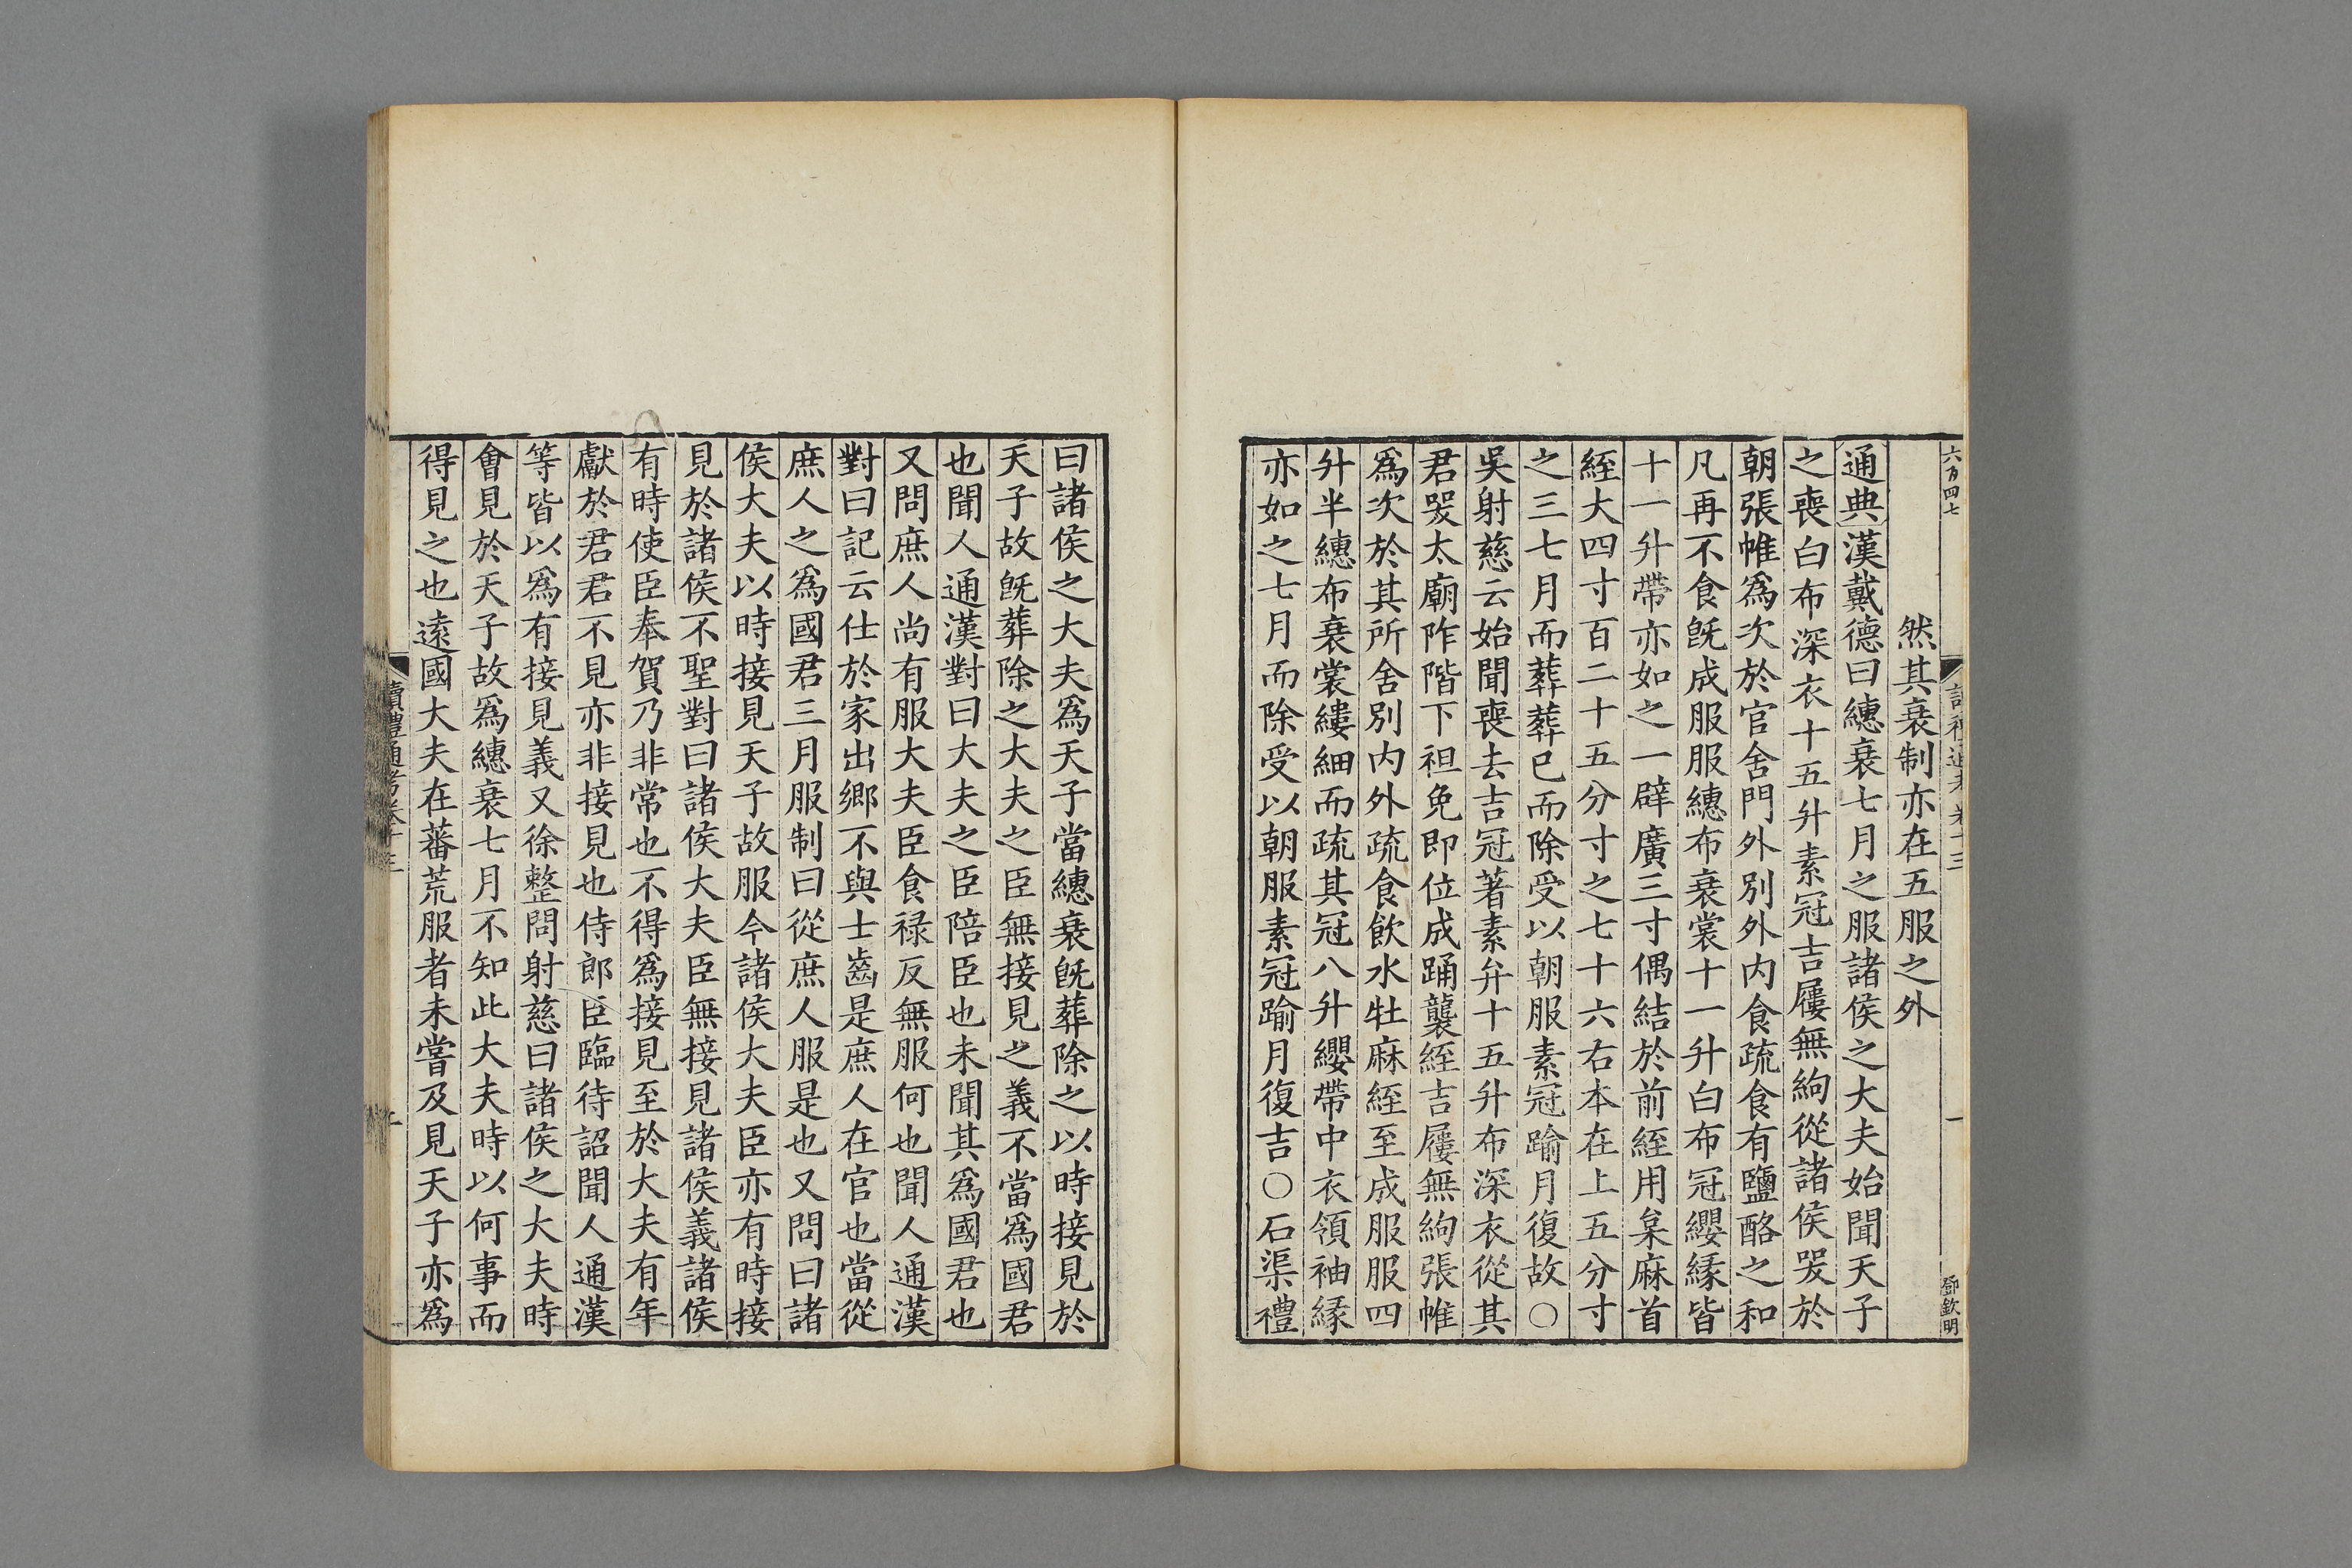 六百四七
讀禮通考卷十三
一
鄧欽明
然其衰制亦在五服之外
通典漢戴德曰繐衰七月之服諸侯之大夫始聞天子
之喪白布深衣十五升素冠吉屨無絇從諸侯哭於
朝張帷爲次於官舍門外別外内食疏食有鹽酪之和
凡再不食旣成服服繐布衰裳十一升白布冠纓緣皆
十一升帶亦如之一辟廣三寸偶結於前絰用枲麻首
絰大四寸百二十五分寸之七十六右本在上五分寸
之三七月而葬葬已而除受以朝服素冠踰月復故○
吳射慈云始聞喪去吉冠著素弁十五升布深衣從其
君哭太廟阼階下袒免即位成踊襲絰吉屨無絇張帷
爲次於其所舍別内外疏食飲水牡麻絰至成服服四
升半繐布衰裳縷細而疏其冠八升纓帶中衣領袖緣
亦如之七月而除受以朝服素冠踰月復吉○石渠禮
曰諸侯之大夫爲天子當繐衰旣葬除之以時接見於
天子故旣葬除之大夫之臣無接見之義不當爲國君
也聞人通漢對曰大夫之臣陪臣也未聞其爲國君也
又問庶人尚有服大夫臣食祿反無服何也聞人通漢
對曰記云仕於家出鄉不與士齒是庶人在官也當從
庶人之爲國君三月服制曰從庶人服是也又問曰諸
侯大夫以時接見天子故服今諸侯大夫臣亦有時接
見於諸侯不聖對曰諸侯大夫臣無接見諸侯義諸侯
有時使臣奉賀乃非常也不得爲接見至於大夫有年
獻於君君不見亦非接見也侍郎臣臨待詔聞人通漢
等皆以爲有接見義又徐整問射慈曰諸侯之大夫時
會見於天子故爲繐衰七月不知此大夫時以何事而
得見之也遠國大夫在蕃荒服者未嘗及見天子亦爲
讀禮通考卷十三